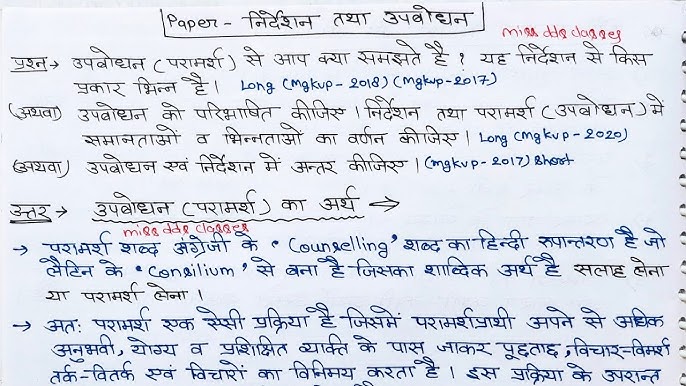 Paper - निर्देशन तथा उपबोधन
miss ddr classes
प्रश्न→ उपबोधन (परामर्श) से आप क्या समझते हैं ? यह निर्देशन से किस
प्रकार भिन्न है। Long (Mgkvp - 2018) (Mgkvp - 2017)
(अथवा) उपबोधन को परिभाषित कीजिए। निर्देशन तथा परामर्श (उपबोधन) में
समानताओं व भिन्नताओं का वर्णन कीजिए। Long (Mgkvp - 2020)
(अथवा) उपबोधन एवं निर्देशन में अन्तर कीजिए। (mgkvp - 2017) Short
उत्तर→ उपबोधन (परामर्श) का अर्थ →
miss ddr classes
→ परामर्श शब्द अंग्रेजी के 'Counselling' शब्द का हिन्दी रुपान्तरण है जो
लैटिन के 'Consilium' से बना है जिसका शाब्दिक अर्थ है सलाह लेना
या परामर्श लेना।
→ अतः परामर्श एक ऐसी प्रक्रिया है जिसमें परामर्शप्रार्थी अपने से अधिक
अनुभवी, योग्य व प्रशिक्षित व्यक्ति के पास जाकर पूछताछ, विचार-विमर्श
तर्क-वितर्क एवं विचारों का विनिमय करता है। इस प्रक्रिया के उपरान्त